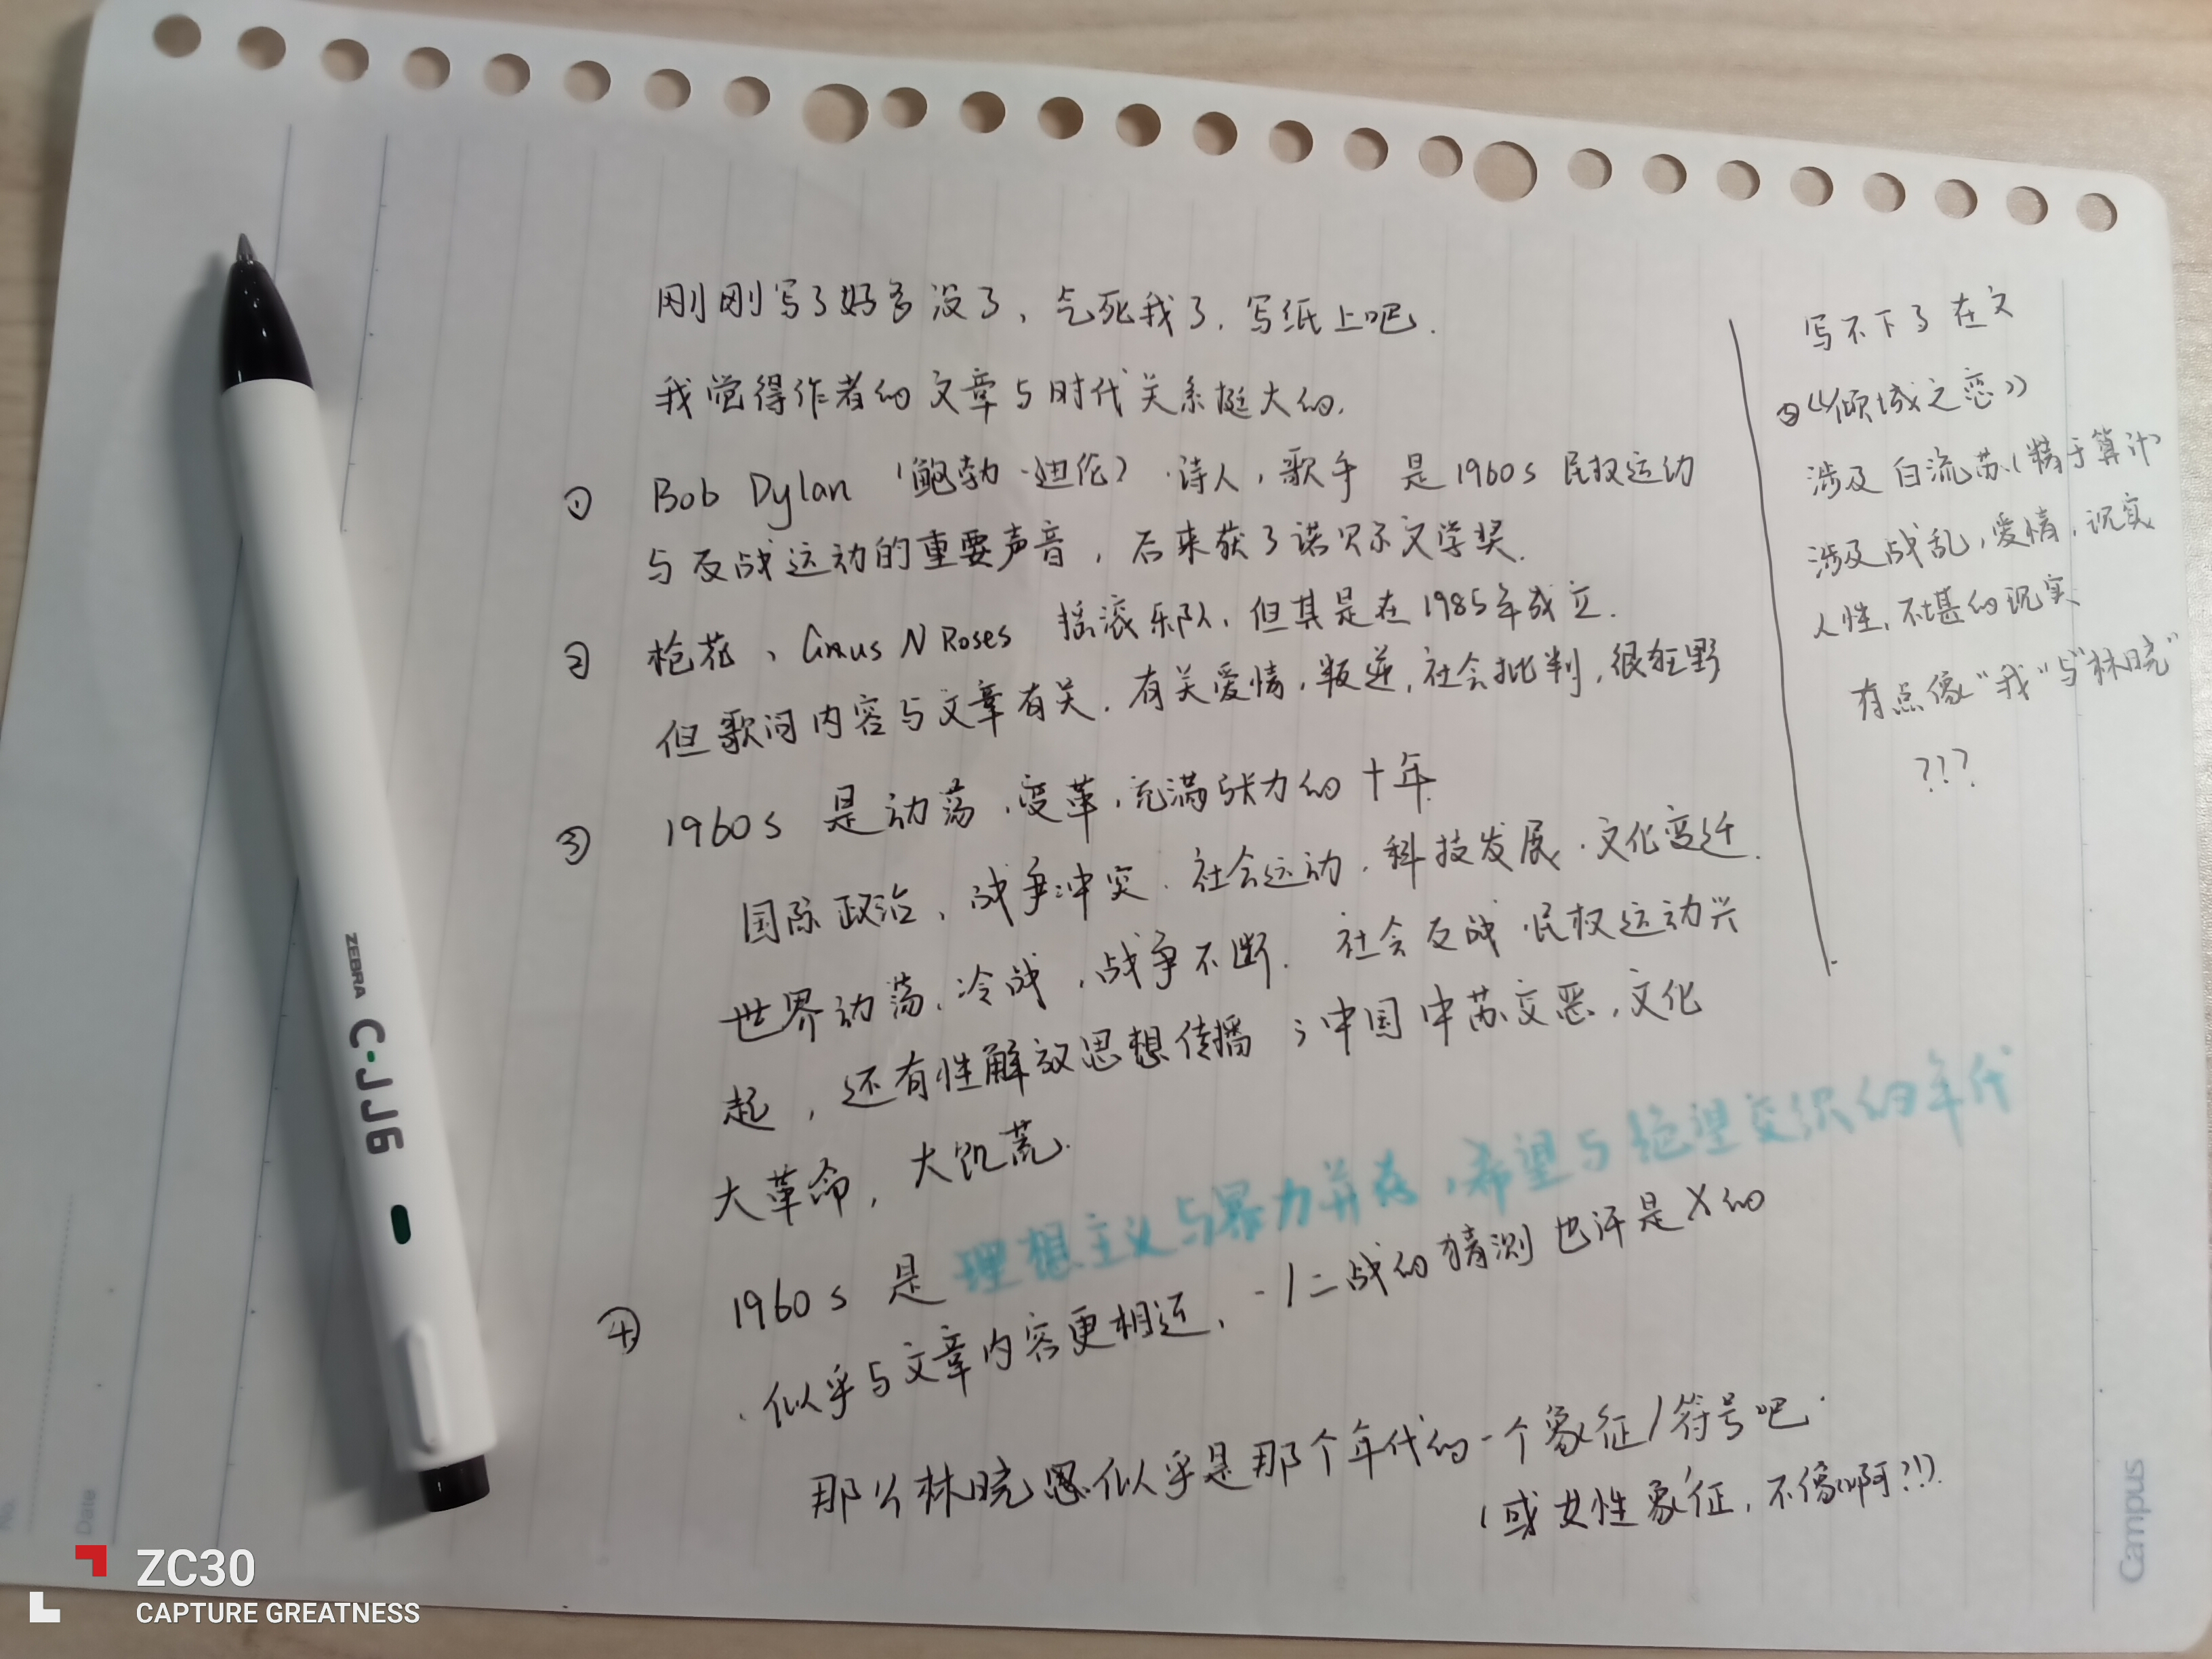 刚刚写了好多没了，气死我了，写纸上吧.
我觉得作者的文章与时代关系挺大的.
① Bob Dylan（鲍勃·迪伦）.诗人，歌手 是1960s 民权运动
与反战运动的重要声音，后来获了诺贝尔文学奖.
② 枪花、Guns N Roses 摇滚乐队，但其是在1985年成立.
但歌词内容与文章有关.有关爱情，叛逆，社会批判，很狂野
③ 1960s 是动荡.变革.充满张力的十年.
国际政治，战争冲突.社会运动.科技发展.文化变迁.
世界动荡，冷战，战争不断.社会反战.民权运动兴
起，还有性解放思想传播；中国中苏交恶，文化
大革命，大饥荒.
④ 1960s 是 理想主义与暴力并存，希望与绝望交织的年代
似乎与文章内容更相近，一/二战的猜测也许是X的
那么林晓思似乎是那个年代的一个象征/符号吧.
（或女性象征，不像啊?!）.
写不下了在文
《倾城之恋》
涉及白流苏（精于算计
涉及战乱，爱情，现实
人性，不堪的现实
有点像“我”与“林晓”
???
ZEBRA C·JJ6
No.
Date
Campus
ZC30
CAPTURE GREATNESS